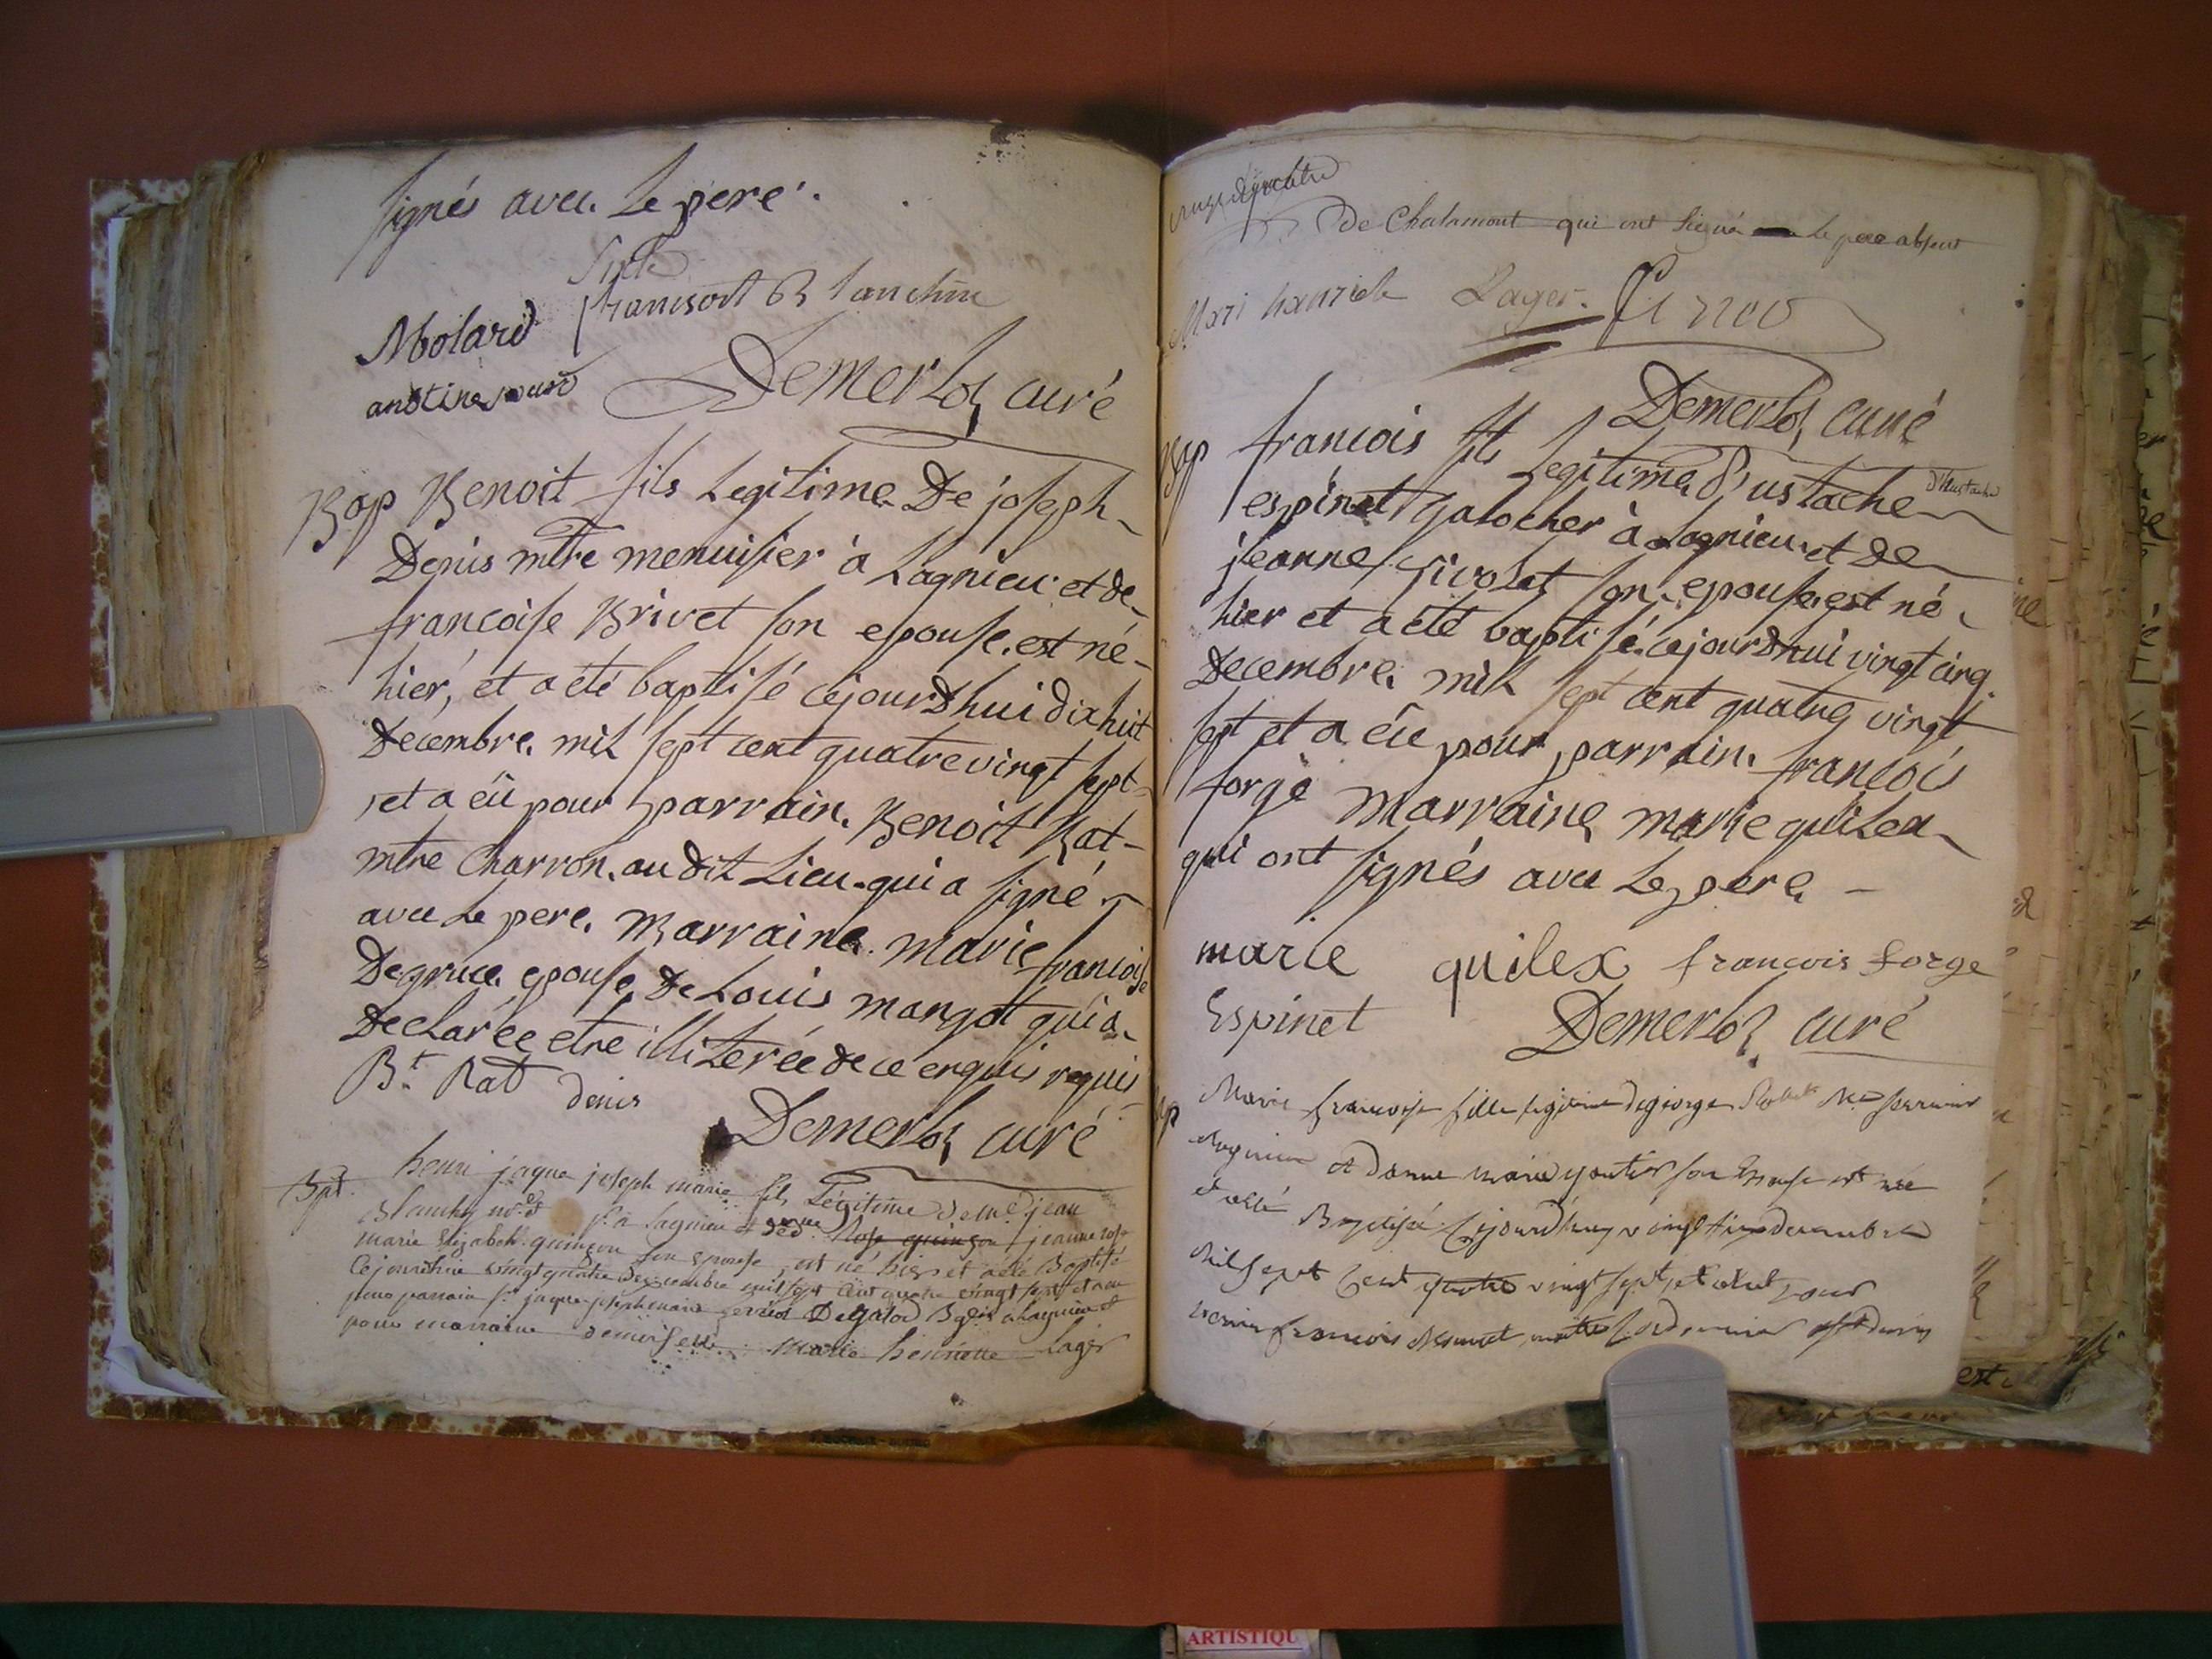 signés avec Le pere.
Molard
Demerloz curé
Bap Benoit fils Legitime De joseph
Denis mtre menuisier à Lagnieu et de
françoise Brivet son epouse est né
hier, et a été baptisé cejourdhui dixhuit
Decembre mil sept cent quatre vingt sept
et a eü pour parrain Benoit Rat
mtre Charron audit Lieu qui a signé
avec Le pere. Marraine marie francoise
Degruce epouse De Louis mangot qui a
Declarée etre illiterée de ce enquis requis
Bt. Rat denis
Demerloz curé
Bpt. henri jaque joseph marie fils Légitime de jean
à lagnieu et de Rose quinson jeanne rose
marie Elizabeth quinson son epouse, est né hier et a été Baptisé
Cejourdhui vingt quatre decembre mil sept cent quatre vingt sept et a eu
pour parrain sr. jaque joseph marie à lagnieu et
pour marraine demoiselle marie henriette Lager
De Chalamont qui ont signé le pere absent
Mari hanriete Lager
Demerloz curé
Bap francois fils Legitime d'ustache d'Eustache
espinet galocher à Lagnieu et De
jeanne sivolet son epouse est né
hier et a été baptisé cejourdhui vingt cinq
Decembre mil sept cent quatre vingt
sept et a eü pour parrain francois
forge Marraine marie quilex
qui ont signés avec Le pere
marie quilex francois forge
Espinet Demerloz curé
Marie francoise fille legitime de george
et danne marie son Epouse est née
et a été Baptisée Cejourdhuy vingt decembre
Mil sept Cent quatre vingt sept et a eut pour
parrain francois
ARTISTIQU